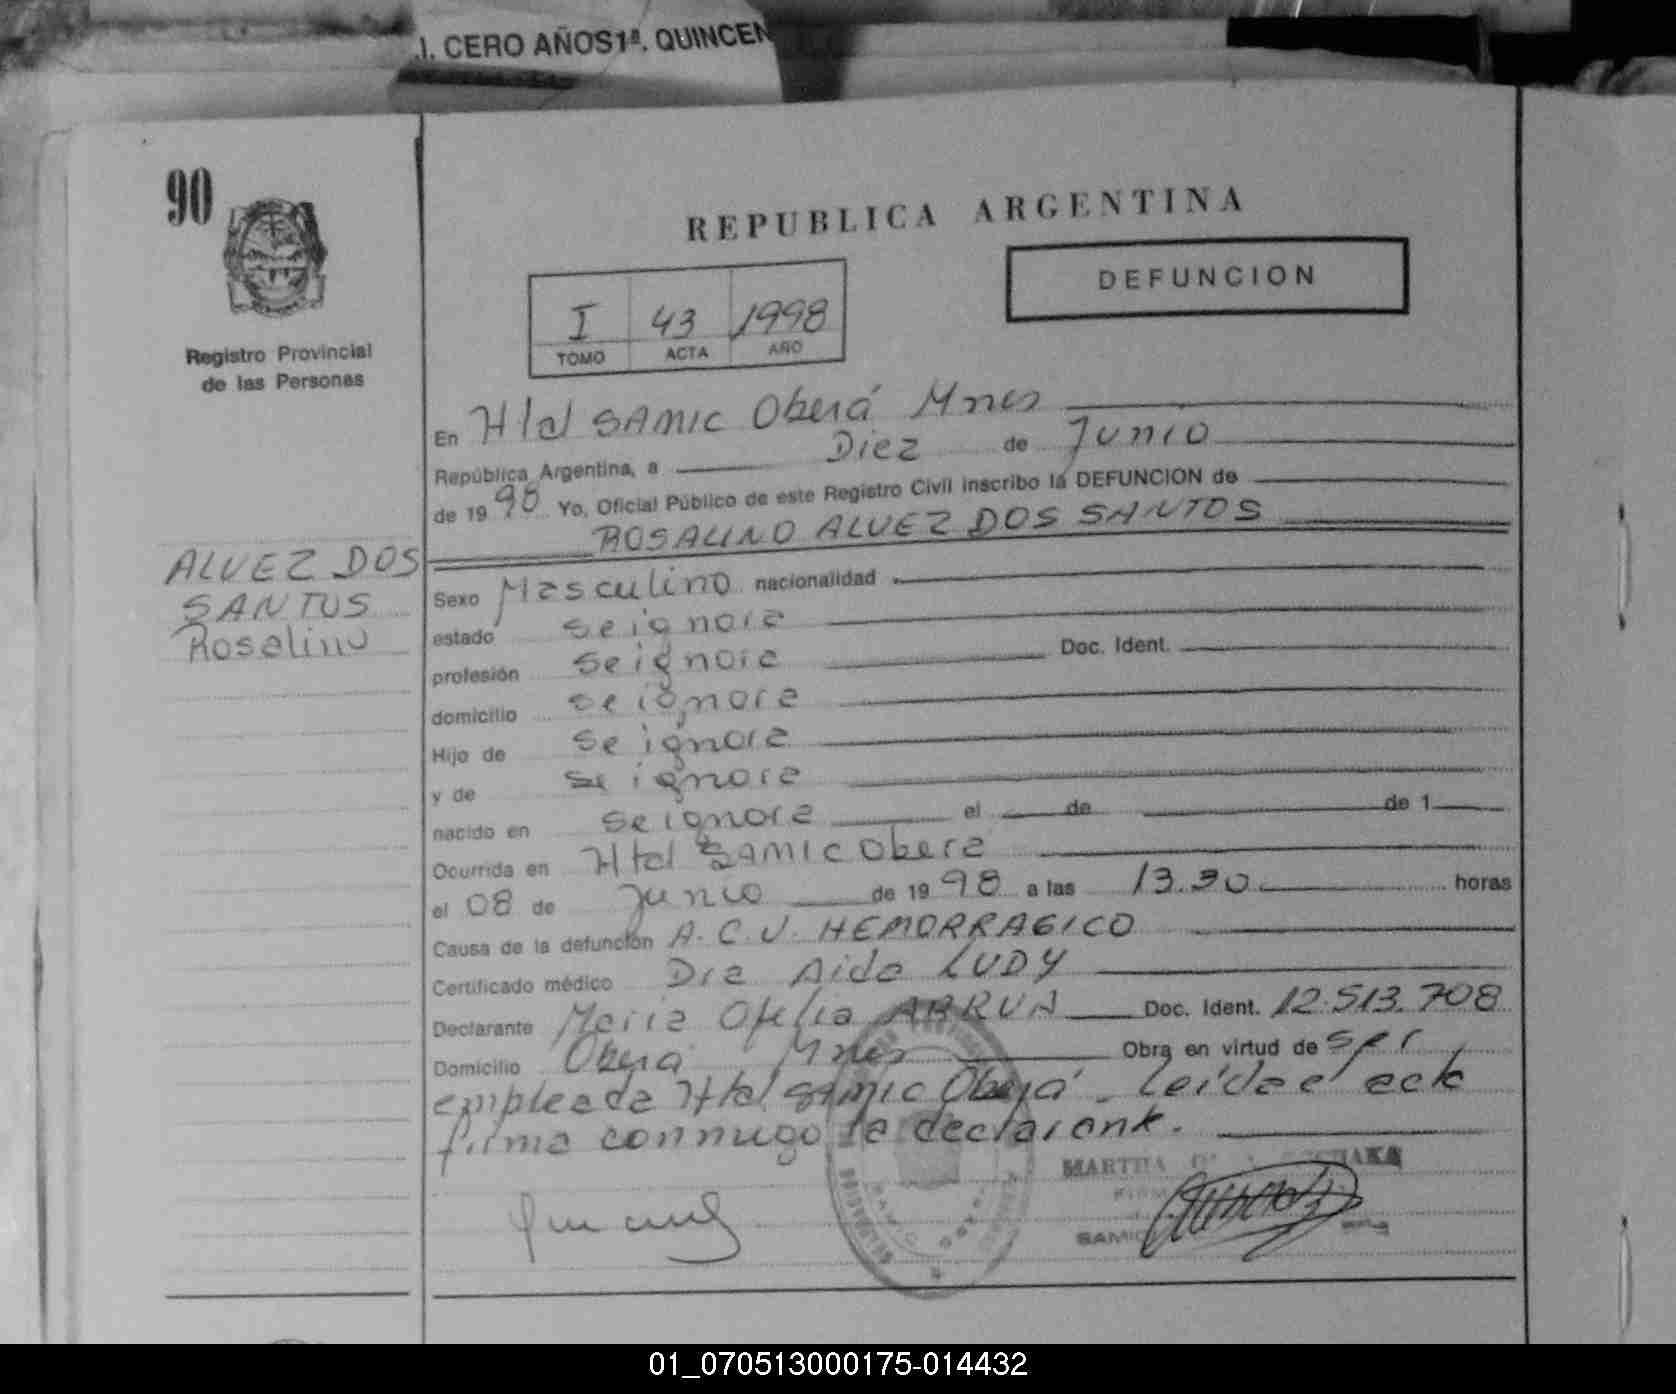 .I. CERO AÑOS 1ª. QUINCEN
90
REPUBLICA ARGENTINA
DEFUNCION
I 43 1998
TOMO ACTA AÑO
Registro Provincial
de las Personas
En Htal SAMIC Oberá Mnes
República Argentina, a Diez de Junio
de 1998 Yo, Oficial Público de este Registro Civil inscribo la DEFUNCION de
ROSALINO ALVEZ DOS SANTOS
ALVEZ DOS
SANTOS
Rosalino
Sexo Masculino nacionalidad
estado se ignora
profesión se ignora Doc. Ident.
domicilio se ignora
Hijo de se ignora
y de se ignora
nacido en se ignora el de de 1
Ocurrida en Htal SAMIC Obera
el 08 de Junio de 1998 a las 13.30 horas
Causa de la defunción A.C.V. HEMORRAGICO
Certificado médico Dra Aida LUDY
Declarante Maria Ofelia ARRUA Doc. Ident. 12.513.708
Domicilio Oberá Mnes Obra en virtud de ser
empleada Htal SAMIC Oberá. Leida el acta
firma conmigo la declarante.
MARTHA
SAMIC
01_070513000175-014432